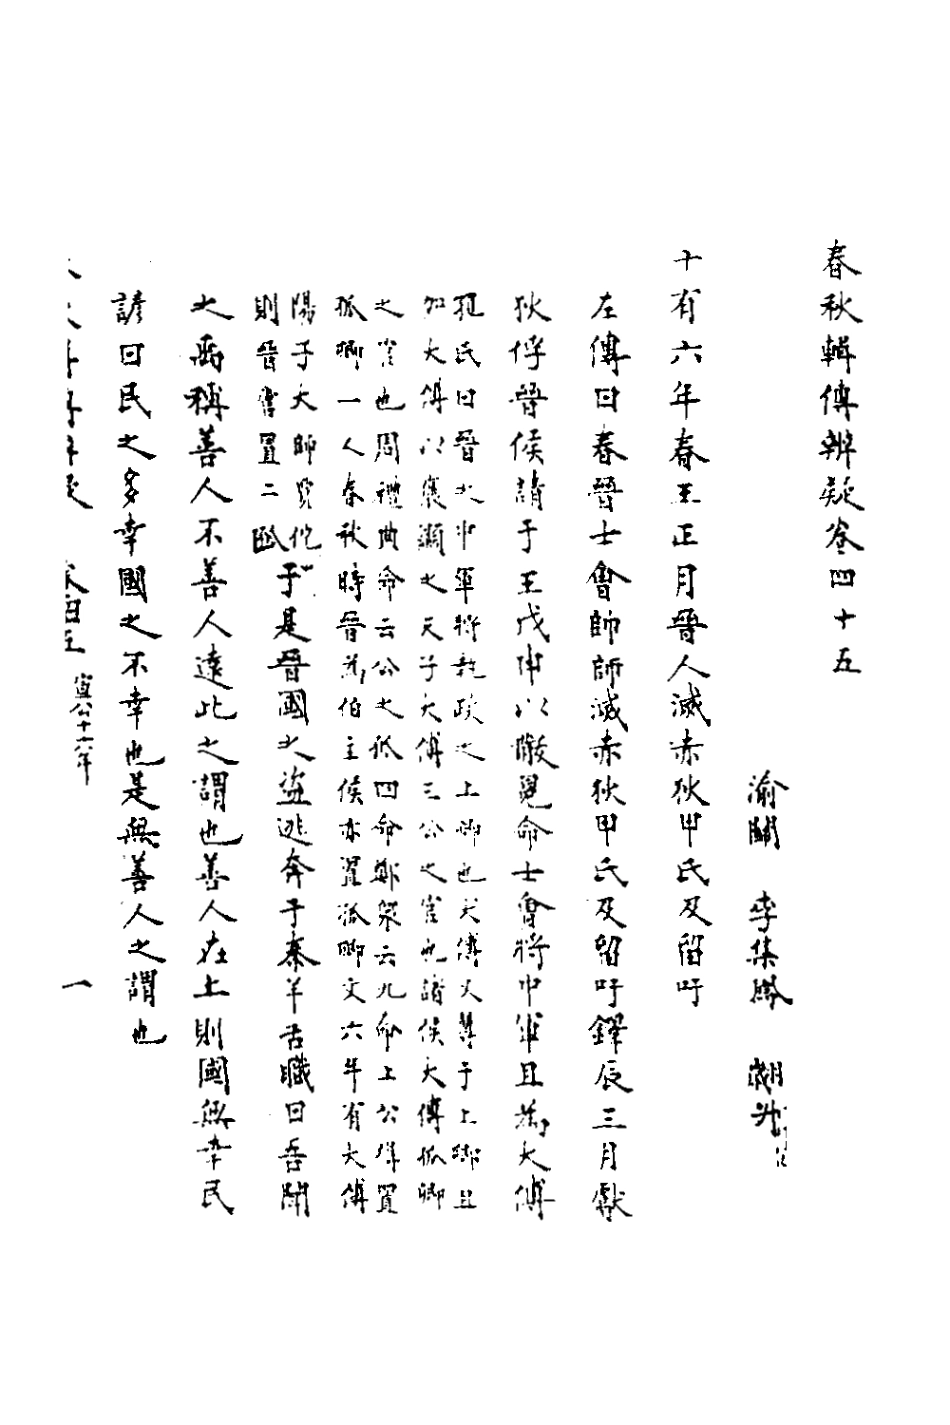 春秋輯傳辨疑卷四十五
渝關　李集鳳　翽升
十有六年春王正月晉人滅赤狄甲氏及留吁
左傳曰春晉士會帥師滅赤狄甲氏及留吁鐸辰三月獻
狄俘晉侯請于王戊申以黻冕命士會將中軍且為大傅
孔氏曰晉之中軍將執政之上卿也大傅又尊于上卿且
加大傅以褒顯之天子大傅三公之官也諸侯大傅孤卿
之官也周禮典命云公之孤四命鄭眾云九命上公得置
孤卿一人春秋時晉為伯主侯亦置孤卿文六年有大傅
陽子大師賈佗
則晉嘗置二孤
于是晉國之盜逃奔于秦羊舌職曰吾聞
之禹稱善人不善人遠此之謂也善人在上則國無幸民
諺曰民之多幸國之不幸也是無善人之謂也
宣公十六年
一